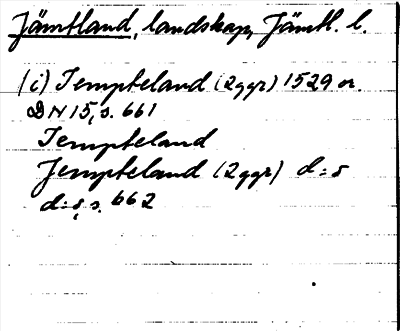 Jämtland, landskap, Jämtl. l.
(i) Jempteland (2ggr) 1529 or.
DN 15, s. 661
Jempteland
Jempteland (2ggr) d:o
d:o, s. 662